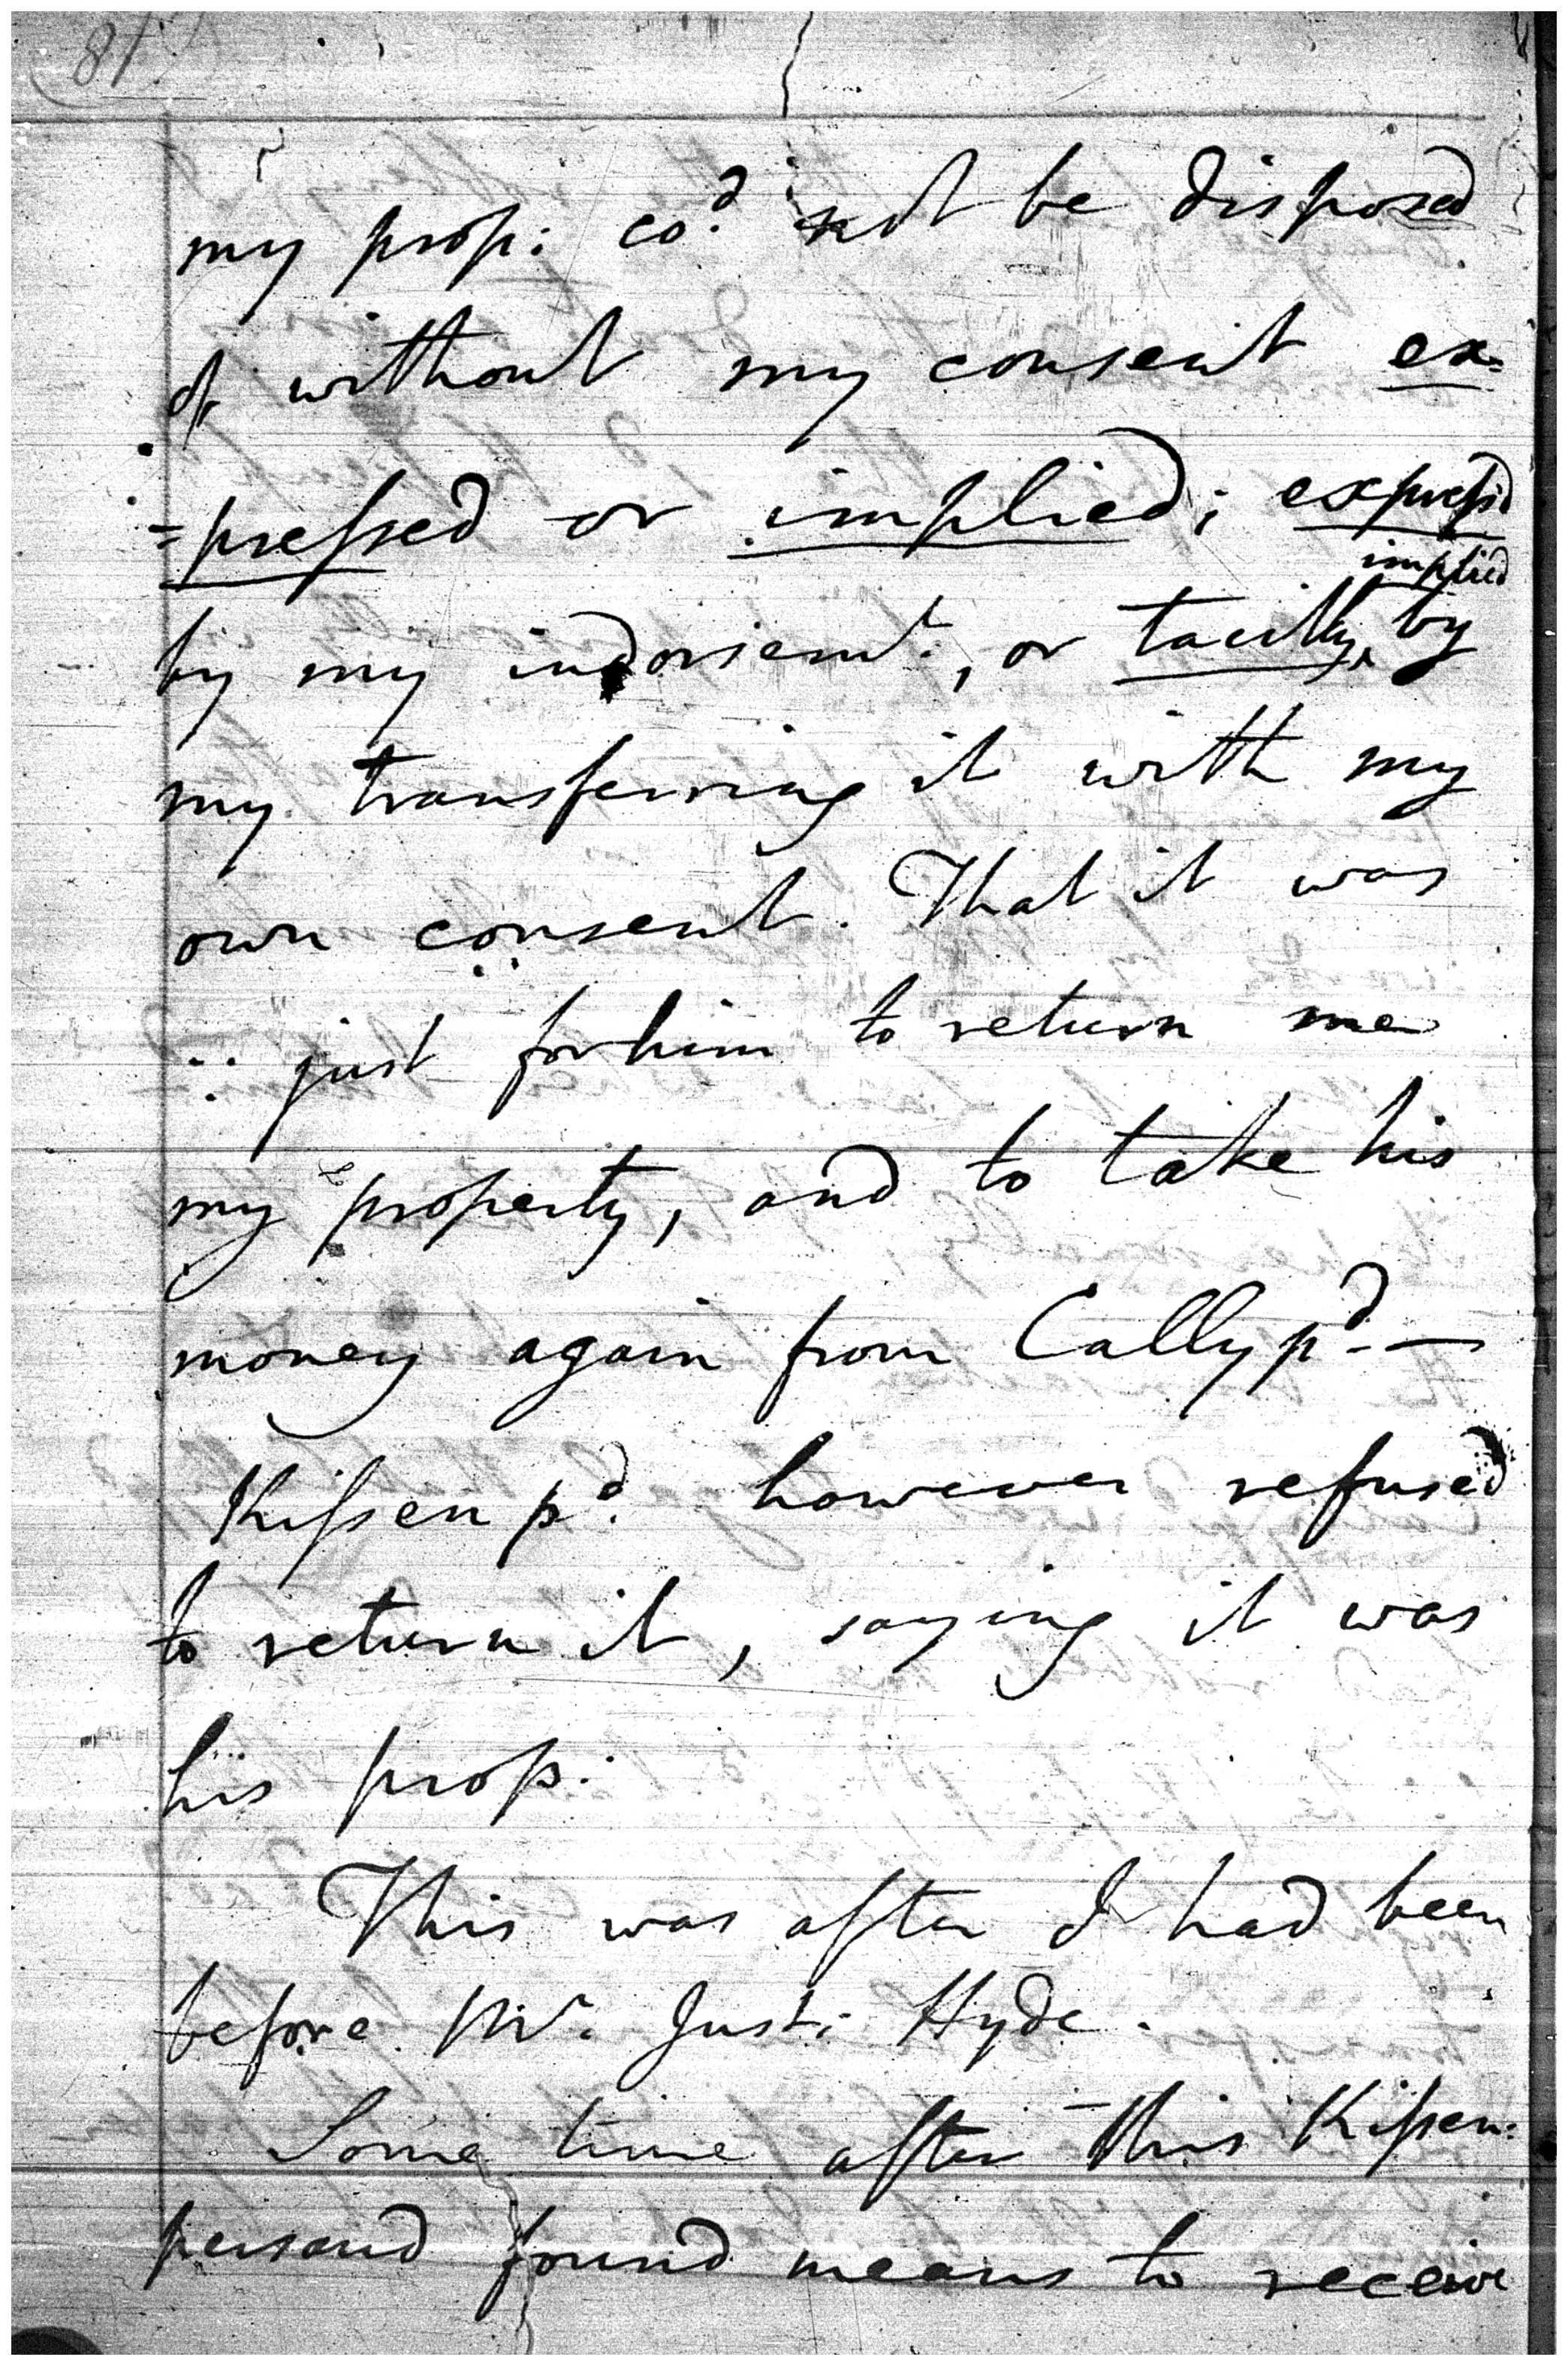 (81)
my prop: co.d not be disposed
of without my consent ex=
=pressed or implied; express'd
implied
by my indorsemt., or tacitly by
my transferring it with my
own consent. That it was
∴ just for him to return me
my property, and to take his
money again from Callypd. —
Kissenpd. however refused
to return it, saying it was
his prop:
This was after I had been
before Mr. Just: Hyde.
Some time after this Kissen:
persaud found means to receive